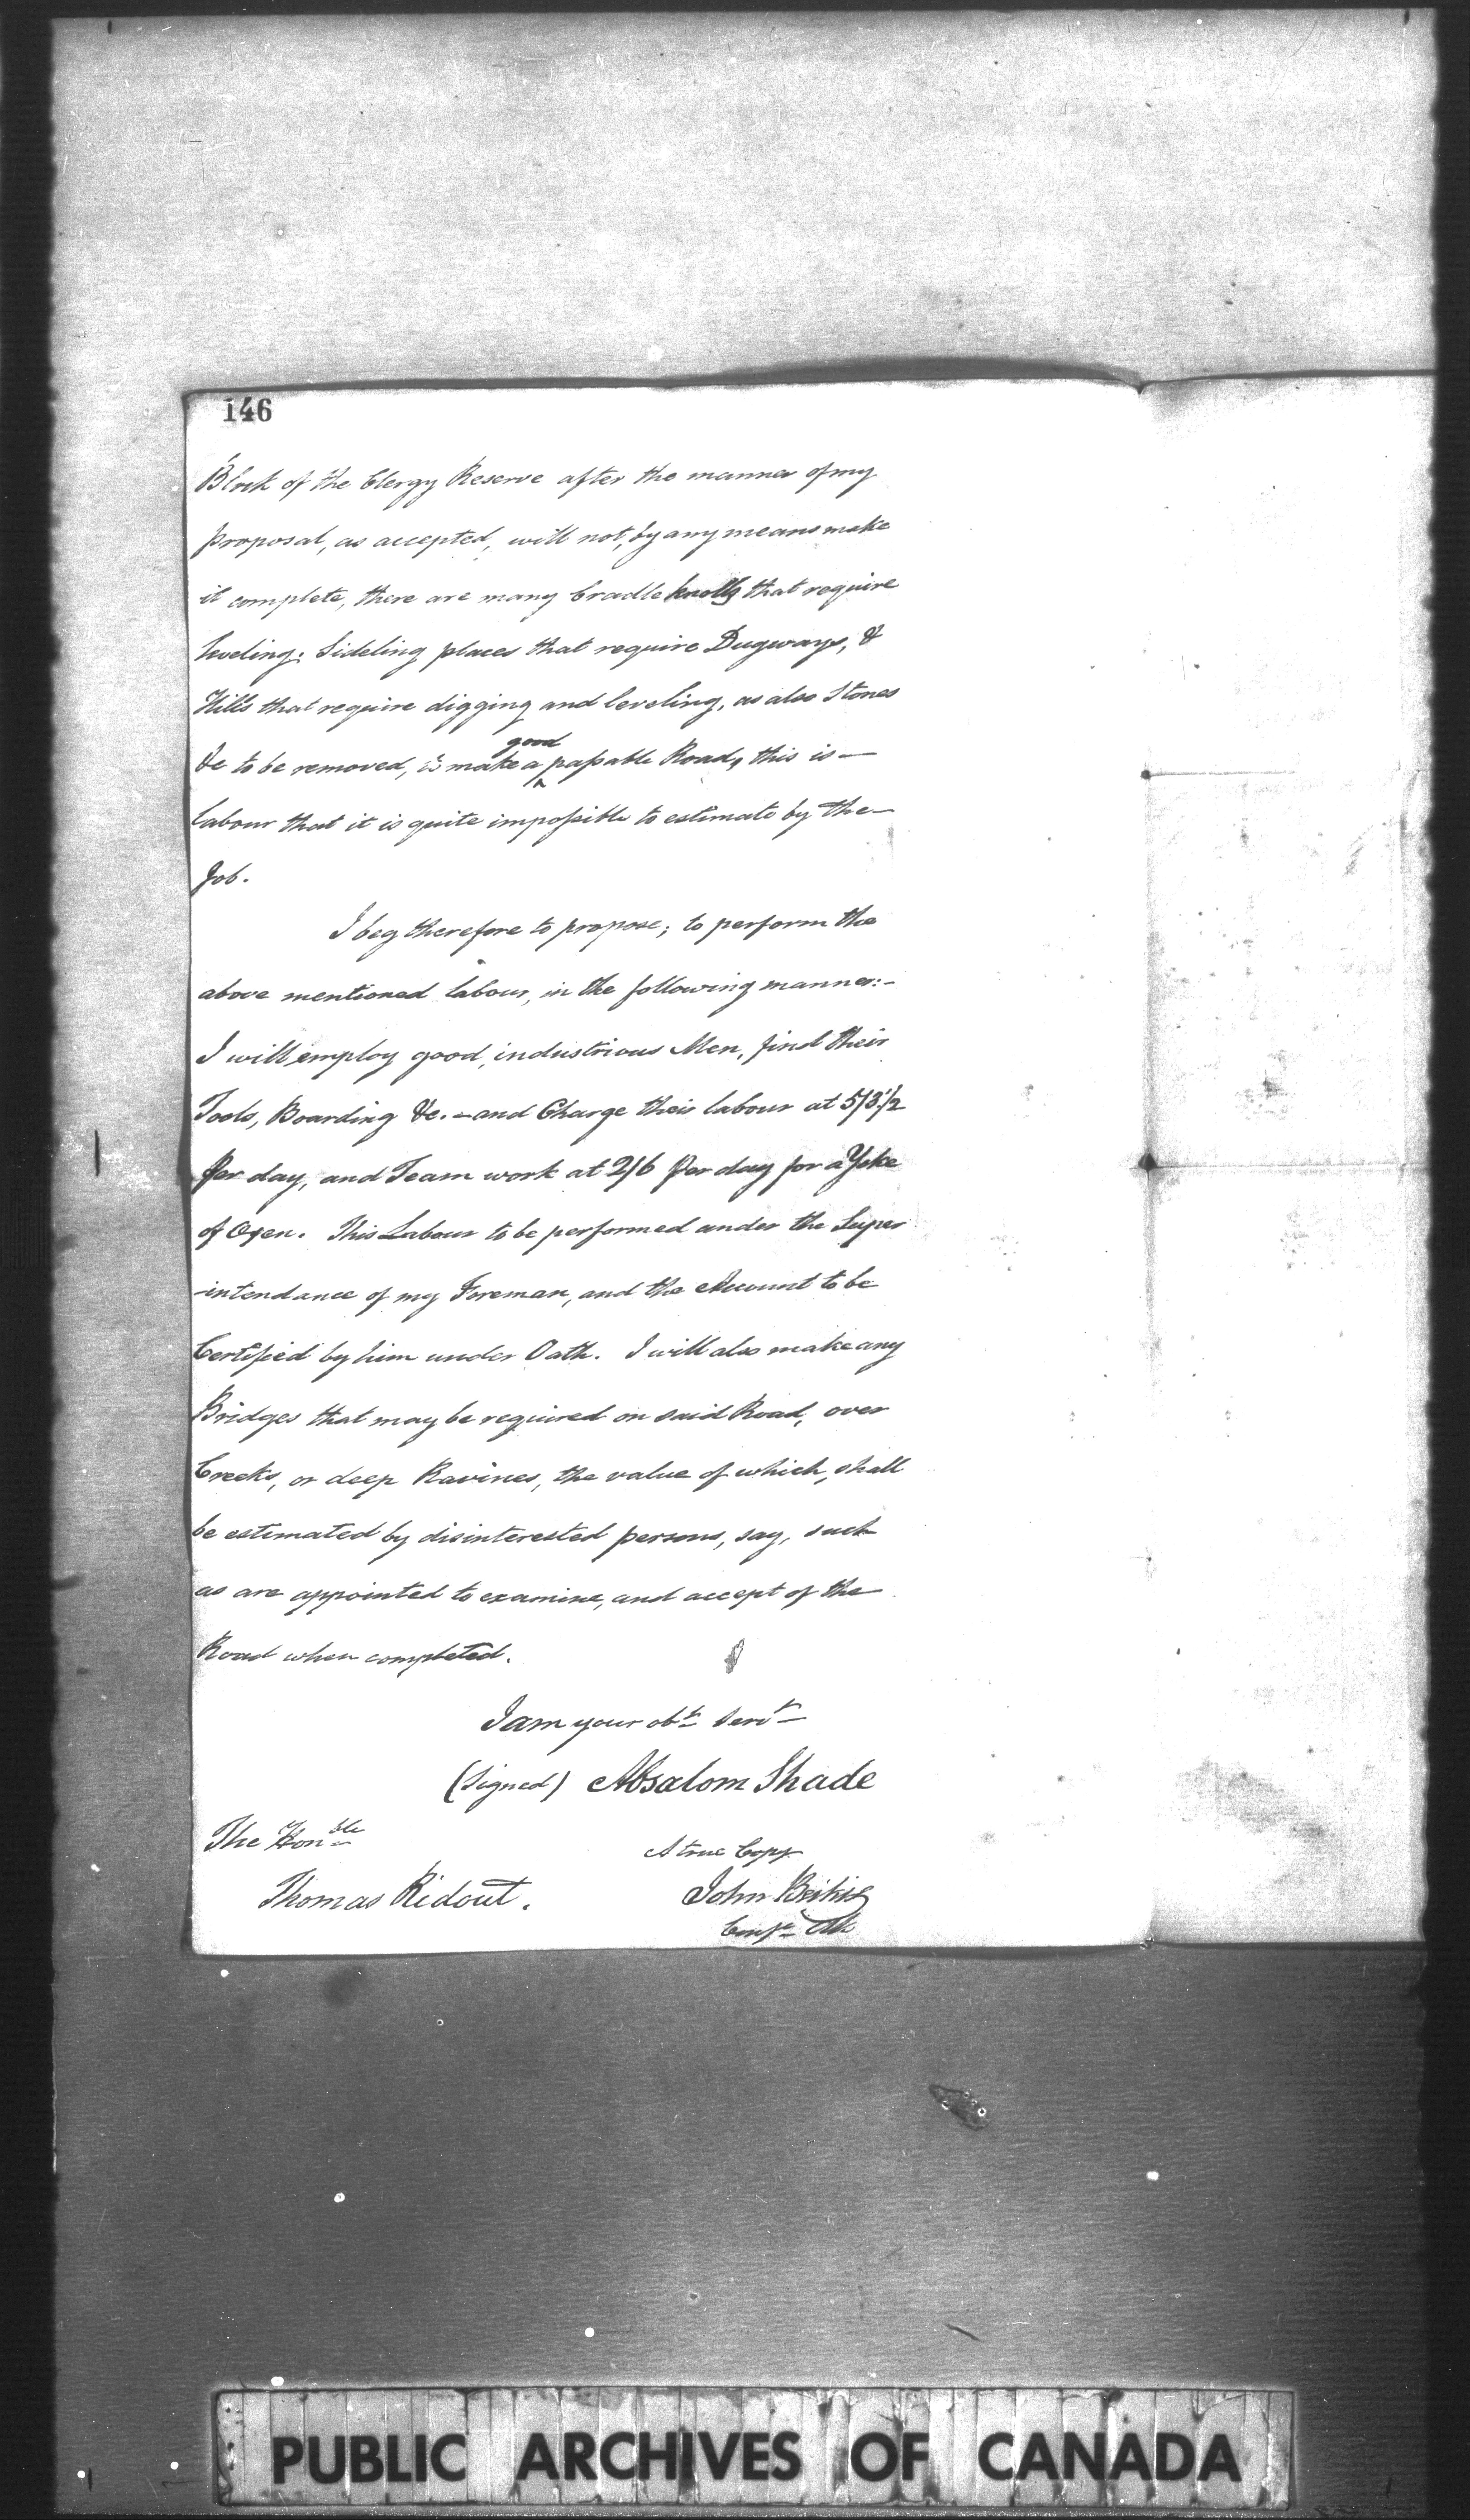 146
Block of the Clergy Reserve after the manner of my
proposal, as accepted, will not, by any means make
it complete, there are many Cradle knolls that require
leveling; Sideling places that require Dugways, &
Hills that require digging and leveling, as also Stones
&c to be removed, to make a good passable Road, this is —
labour that it is quite impossible to estimate by the —
Job.
I beg therefore to propose; to perform the
above mentioned labour, in the following manner:-
I will employ good, industrious Men, find their
Tools, Boarding &c. - and Charge their labour at 5/3½
Per day, and Team work at 2/6 Per day for a Yoke
of Oxen. This Labour to be performed under the Super
-intendance of my Foreman, and the Account to be
Certified by him under Oath. I will also make any
Bridges that may be required on said Road, over
Creeks, or deep Ravines, the value of which, shall
be estimated by disinterested persons, say, such
as are appointed to examine, and accept of the
Road when completed.
I am your obt Servt
(Signed) Absalom Shade
The Honble
A true Copy
Thomas Ridout.
John Beikie
PUBLIC ARCHIVES OF CANADA